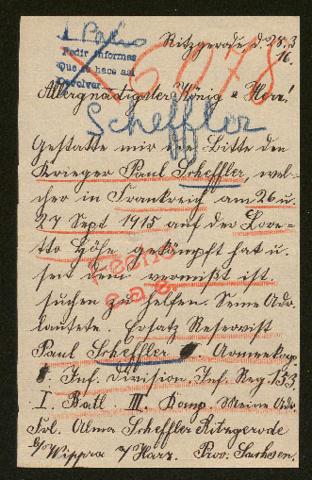 Ritzgerode d. 28.3
16.
Pedir informes
Que se hace asi
Devolver
5078
Allergnädigster König u Herr!
Scheffler
Gestatte mir die Bitte den
Krieger Paul Scheffler, wel-
cher in Frankreich am 26 u.
27 Sept 1915 auf der Lore-
tto Höhe gekämpft hat u.
seit dem vermißt ist.
suchen zu helfen. Seine Adr.
lautete. Ersatz Reservist
Paul Scheffler
8. Inf. Division. Inf. Reg. 153
I Batl III. Komp. Meine Adr.
Frl. Alma Scheffler Ritzgerode
b/ Wippra / Harz. Prov. Sachsen.